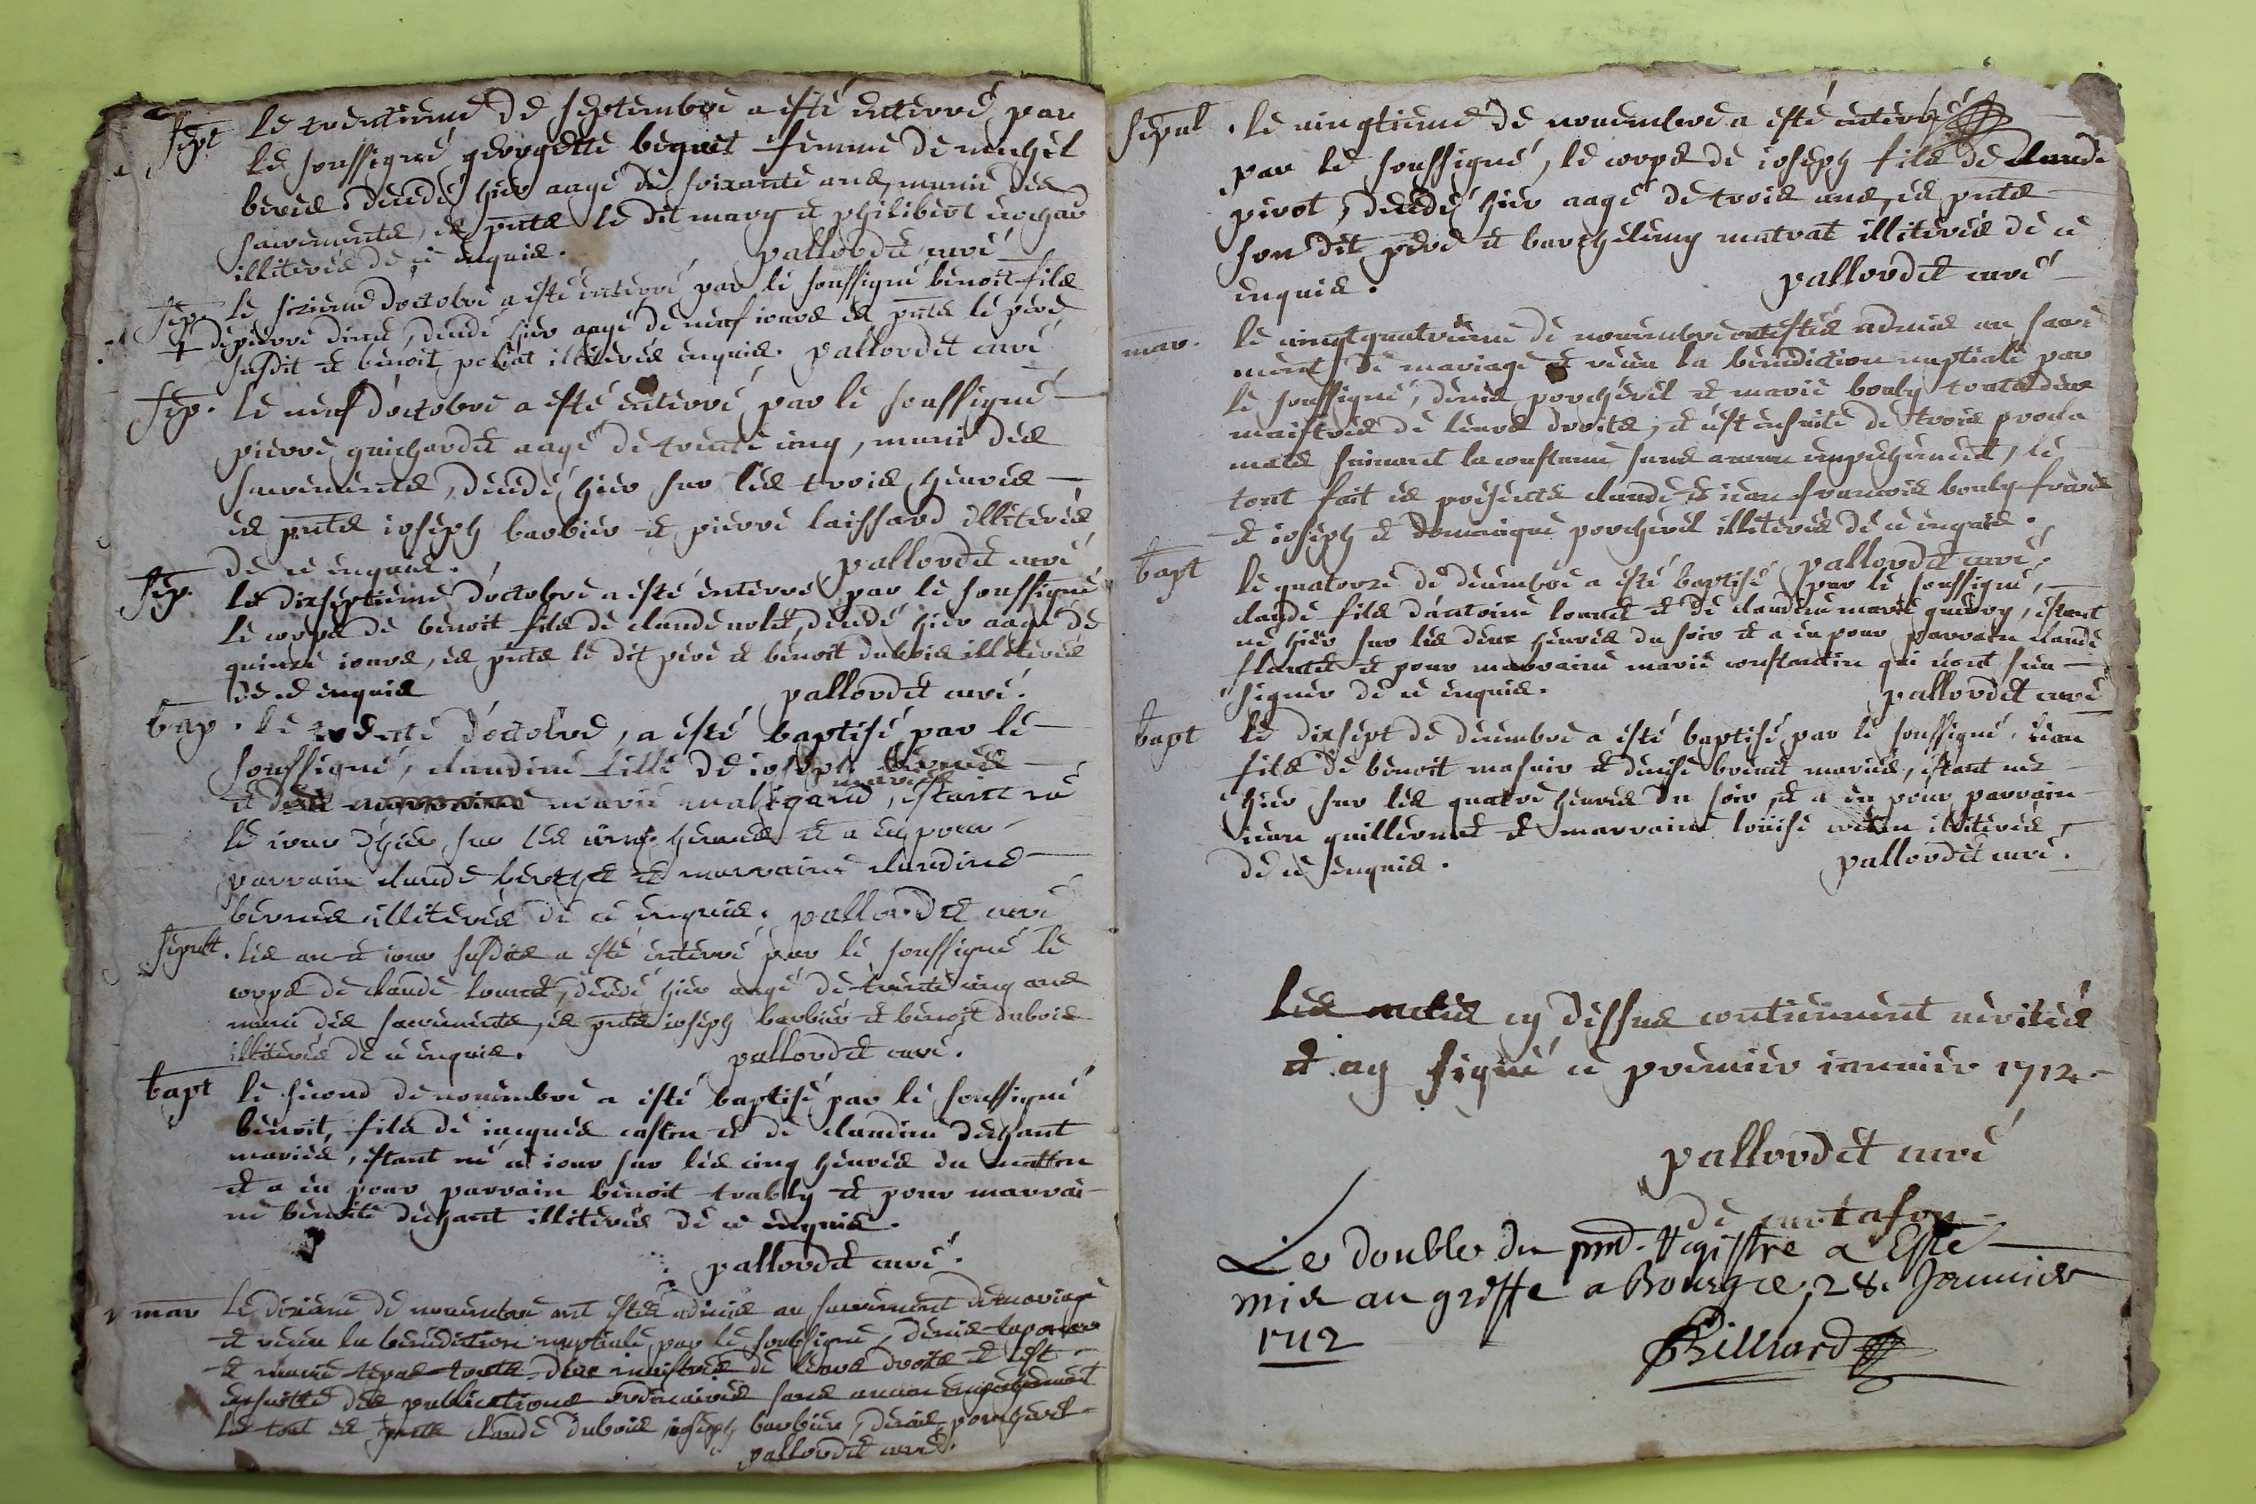 sept le trentieme de septembre a esté enterré par
le soussigné georgette benoit femme de michel
decedé hier aagé de soixante ans, munie des
sacrements, es pnts le dit mary et philibert
illiterés de ce enquis. pallordet curé
sep. le sizieme doctobre a esté enterré par le soussigné benoit fils
de pierre decedé hier aagé de neuf iours es pnts le pere
susdit et benoit illiterés enquis. pallordet curé
sep. le neuf doctobre a esté enterré par le soussigné
pierre guichardet aagé de trente cinq, muni des
sacrements, decedé hier sur les trois heures
es pnts ioseph barbier et pierre laissard illiterés
de ce enquis. pallordet curé
sep. le dixseptieme doctobre a esté enterré par le soussigné
le corps de benoit fils de claude decedé hier aagé de
quinze iours, es pnts le dit pere et benoit dubois illiterés
de ce enquis pallordet curé.
bap. le trente doctobre, a esté baptisé par le
soussigné, claudine fille de ioseph
mariés
et marie estant né
le iour dhier sur les cinq heures et a eu pour
parrain claude et marraine claudine
illiterés de ce enquis. pallordet curé
sepult. les an et iour susdits a esté enterré par le soussigné le
corps de claude decedé hier aagé de trente cinq ans
muni des sacrements, es pnts ioseph barbier et benoit dubois
illiterés de ce enquis. pallordet curé.
bapt le second de novembre a esté baptisé par le soussigné
benoit fils de iacques et de claudine dechant
mariés, estant né ce iour sur les cinq heures du matin
et a eu pour parrain benoit trably et pour marrai-
ne benoite dechant illiterés de ce enquis.
pallordet curé.
mar le dixieme de novembre ont estés admis au sacrement de mariage
et receu la benediction nuptiale par le soussigné, denis
et marie tous deux maistres de leurs droits et est
ensuitte des publications ordinaires sans aucun empechement
le tout es pnts claude dubois, ioseph barbier, denis porcherel
pallordet curé.
sepul. le vingtieme de novembre a esté enterré
par le soussigné, le corps de ioseph fils de claude
pirot, decedé hier aagé de trois ans, es pnts
son dit pere et barthelemy matrat illiterés de ce
enquis. pallordet curé
mar. le vingtquatrieme de novembre ont estés admis au sacre
ment de mariage et receu la benediction nuptiale par
le soussigné, denis porcherel et marie bouly tous deux
maistres de leurs droits, et est ensuite de trois procla
mats suivant la coustume sans aucun empechement, le
tout fait es presences claude et iean francois bouly freres
et ioseph et dominique porcherel illiterés de ce enquis.
pallordet curé.
bapt le quatorze de decembre a esté baptisé par le soussigné,
claude fils dantoine et de claudine marie estant
né hier sur les deux heures du soir et a eu pour parrain claude
et pour marraine marie constantin qui nont sceu
signer de ce enquis. pallordet curé
bapt le dixsept de decembre a esté baptisé par le soussigné, iean
fils de benoit masuir et denise mariés, estant nez
hier sur les quatre heures du soir et a eu pour parrain
iean guillermet et marraine loüise illiterés,
de ce enquis. pallordet curé.
les actes cy dessus contiennent verités
et ay signé ce premier ianvier 1712.
pallordet curé
de curtafon
Le double du pnt. Registre a Esté
mis au greffe a Bourg ce 28. Janvier
1712